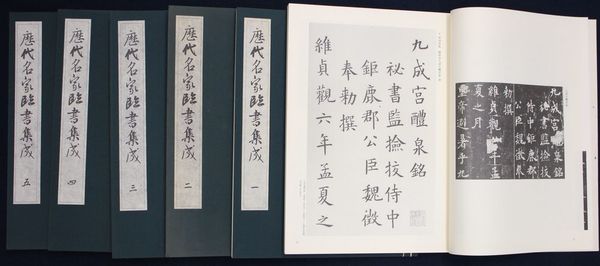 九成宮醴泉銘
祕書監撿挍
侍中鉅鹿郡
公臣魏徵奉
勅撰
維貞觀六年孟
夏之月
皇帝避暑乎九
九成宮醴泉銘
祕書監撿挍侍中
鉅鹿郡公臣魏徵
奉勅撰
維貞觀六年孟夏之
歷代名家臨書集成 一
歷代名家臨書集成 二
歷代名家臨書集成 三
歷代名家臨書集成 四
歷代名家臨書集成 五